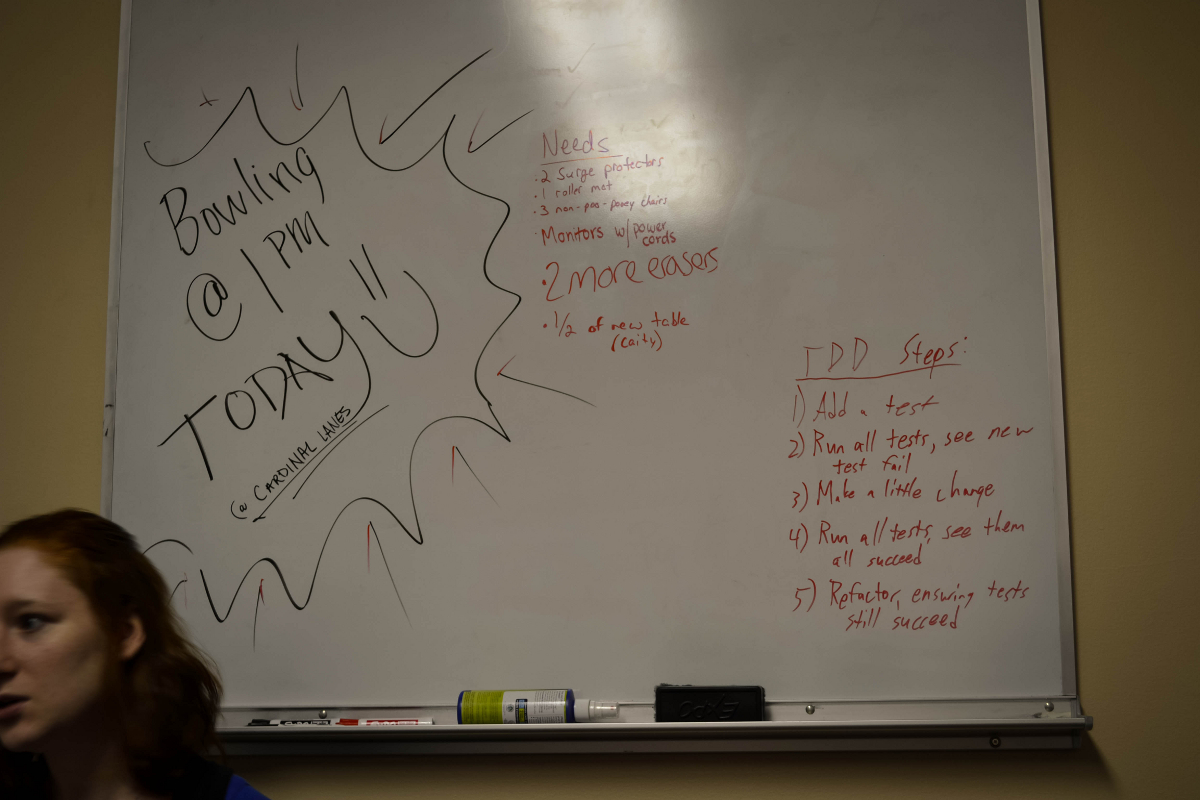 Bowling
@ 1 PM
TODAY!!
@ CARDINAL LANES
Needs
· 2 Surge protectors
· 1 roller mat
· 3 non-poo-pooey chairs
· Monitors w/power
cords
· 2 more erasers
· 1/2 of new table
(Caity)
TDD Steps:
1) Add a test
2) Run all tests, see new
test fail
3) Make a little change
4) Run all tests, see them
all succeed
5) Refactor, ensuring tests
still succeed
EXPO